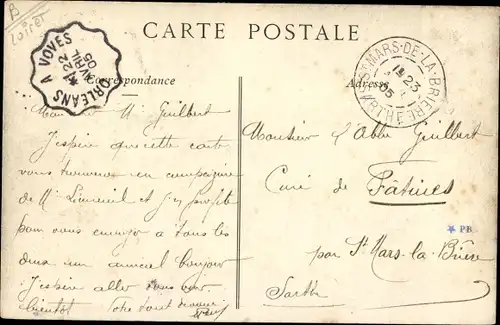 B
Loiret
CARTE POSTALE
Correspondance
Adresse
ORLEANS A VOVES
22
AVRIL
05
ST MARS-DE-LA-BRIERE
23
05
SARTHE
Monsieur Guilbert
J'espère que cette carte
vous trouvera en campagne
de Mr et j'en profite
pour vous envoyer à tous les
deux un amical bonjour
J'espère aller vous voir
bientôt Votre tout dévoué
Monsieur l'Abbé Guilbert
Curé de Fâtines
PB
par St Mars-la-Brière
Sarthe